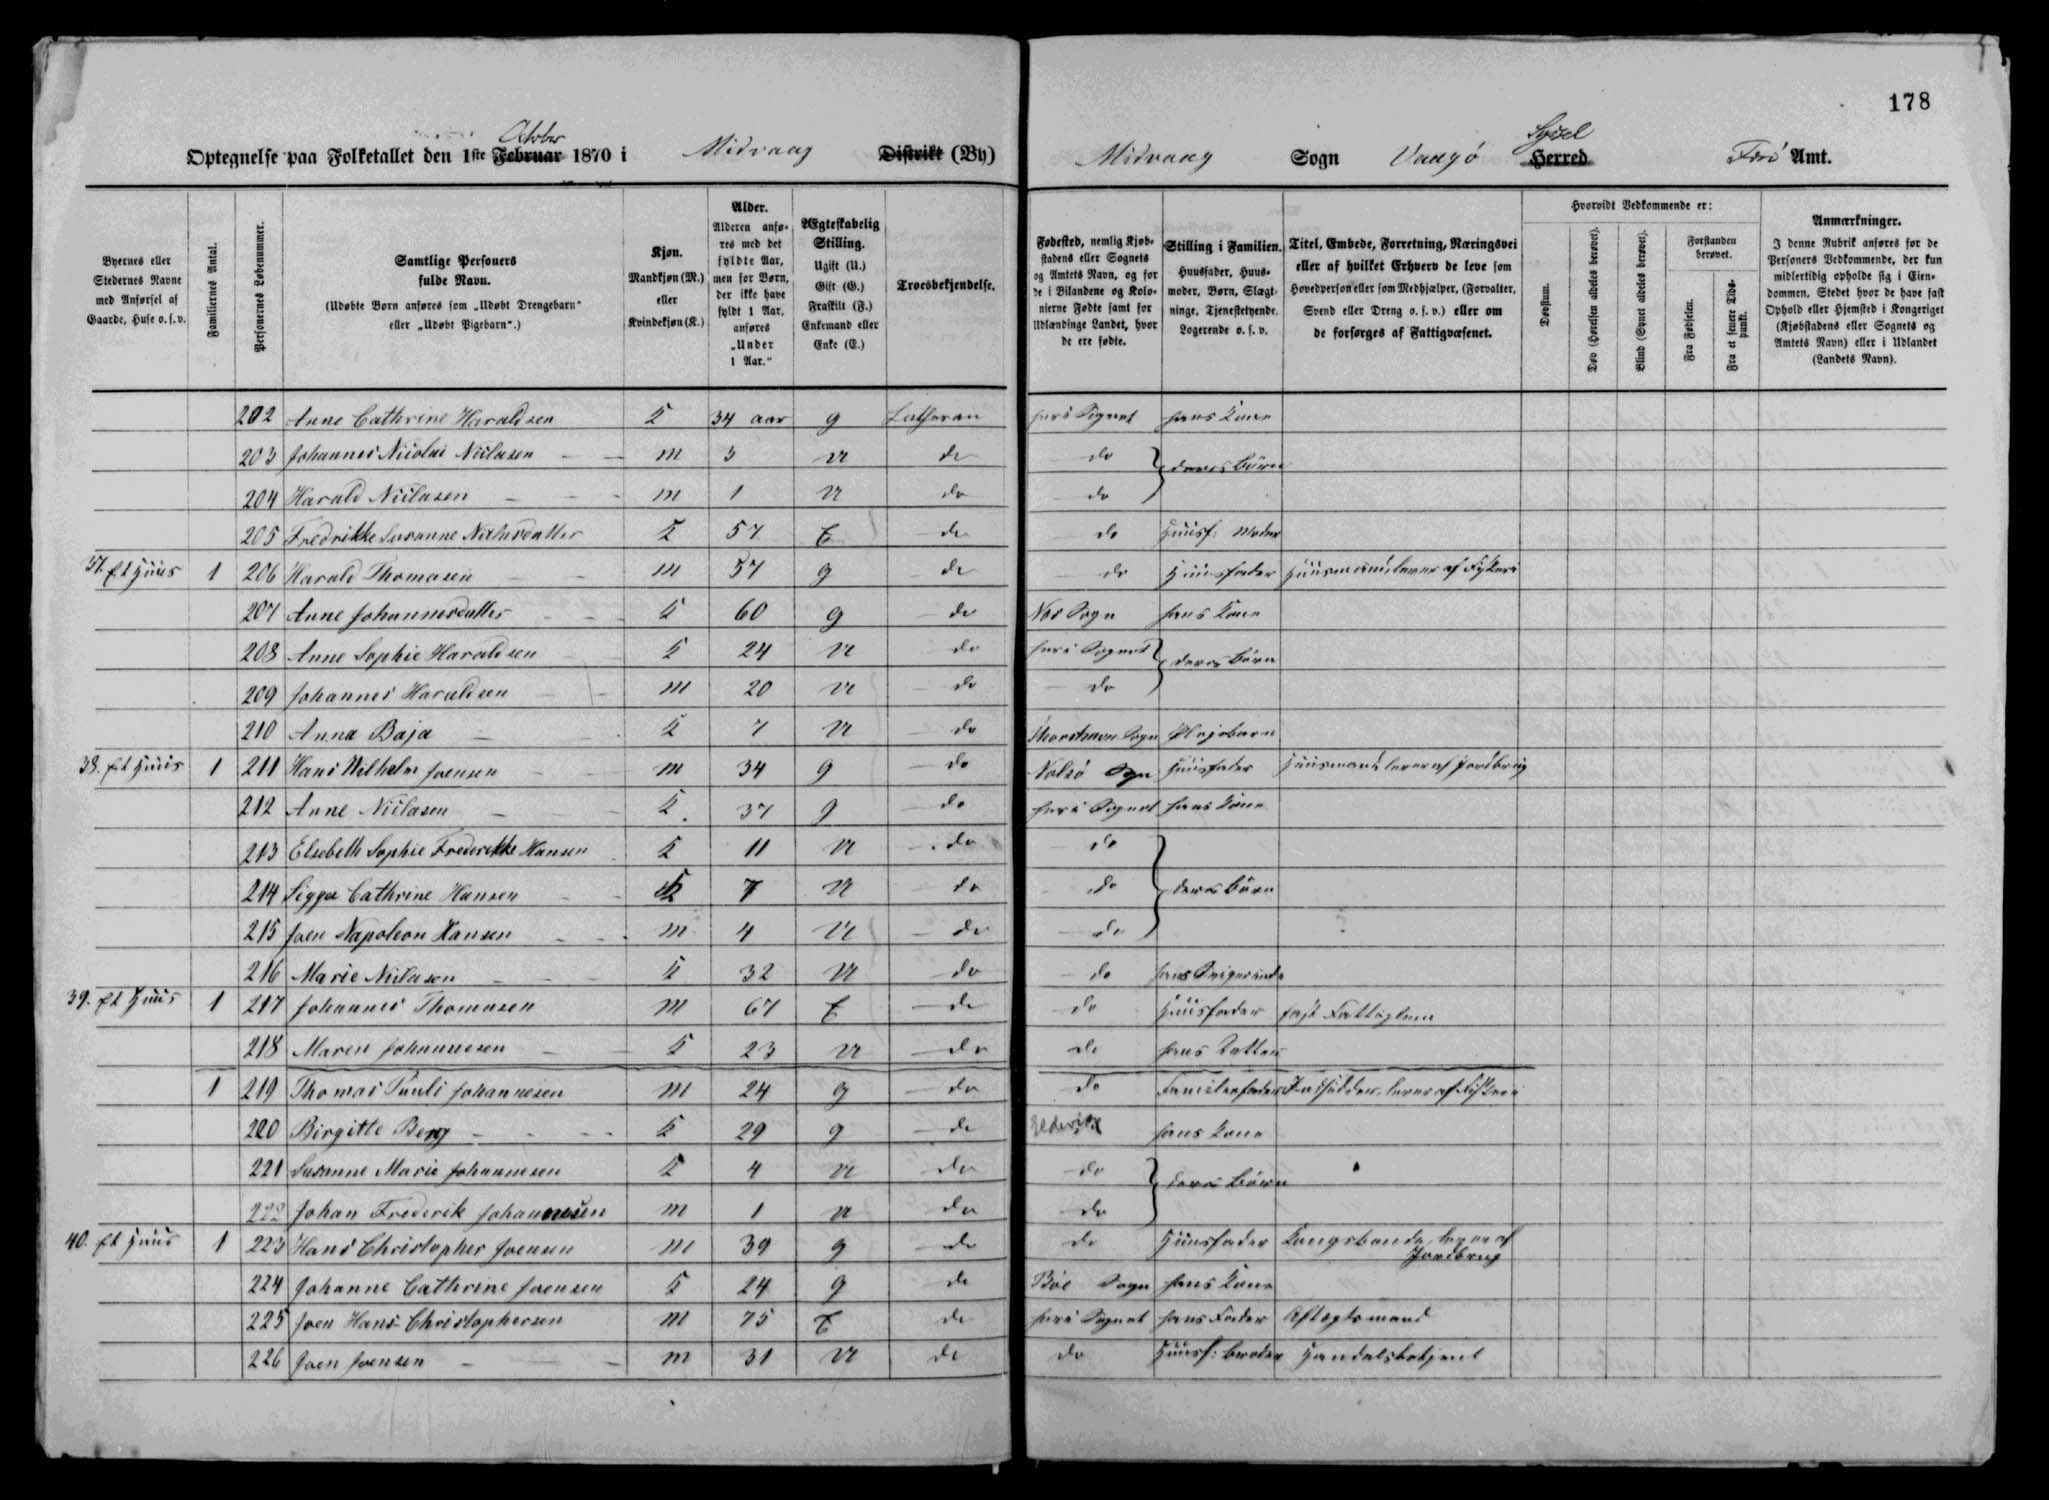 178
Optegnelse paa Folketallet den 1ste Februar October 1870 i Midvaag Distrikt (By) Midvaag Sogn Vaagö Herred Syssel Færö Amt.
Byernes eller Stedernes Navne med Anførsel af Gaarde, Huse o. s. v.
Familiernes Antal.
Personernes Løbenummer.
Samtlige Personers fulde Navn.
(Udøbte Børn anføres som „Udøbt Drengebarn" eller „Udøbt Pigebarn".)
Kjøn. Mandkjøn (M.) eller Kvindekjøn (K.)
Alder. Alderen anføres med det fyldte Aar, men for Børn, der ikke have fyldt 1 Aar, anføres „Under 1 Aar."
Ægteskabelig Stilling. Ugift (U.) Gift (G.) Fraskilt (F.) Enkemand eller Enke (E.)
Troesbekjendelse.
Fødested, nemlig Kjøbstadens eller Sognets og Amtets Navn, og for de i Bilandene og Kolonierne Fødte samt for Udlændinge Landet, hvor de ere fødte.
Stilling i Familien. Huusfader, Huusmoder, Børn, Slægtninge, Tjenestetyende, Logerende o. s. v.
Titel, Embede, Forretning, Næringsvei eller af hvilket Erhverv de leve som Hovedperson eller som Medhjælper, (Forvalter, Svend eller Dreng o. s. v.) eller om de forsørges af Fattigvæsenet.
Hvorvidt Vedkommende er:
Døvstum.
Døv (Hørelsen aldeles berøvet).
Blind (Synet aldeles berøvet).
Forstanden berøvet.
Fra Fødselen.
Fra et senere Tidspunkt.
Anmærkninger. I denne Rubrik anføres for de Personers Vedkommende, der kun midlertidig opholde sig i Eiendommen, Stedet hvor de have fast Ophold eller Hjemsted i Kongeriget (Kjøbstadens eller Sognets og Amtets Navn) eller i Udlandet (Landets Navn).
202 Anne Cathrine Haraldsen K 34 aar g Lutheran her i Sognet hans Kone
203 Johannes Nicolai Niclasen M 3 U do do deres Börn
204 Harald Niclasen M 1 U do do
205 Fredrikke Susanne K 57 E do do Huusf: Moder
37. Et Huus 1 206 Harald Thomasen M 57 g do do Huusfader Huusmand lever af Fiskeri
207 Anne Johannesdatter K 60 g do Næs Sogn hans Kone
208 Anne Sophie Haraldsen K 24 U do her i Sognet deres Börn
209 Johannes Haraldsen M 20 U do do
210 Anna Baja K 7 U do Thorshavn Sogn Pleiebarn
38. Et Huus 1 211 Hans Wilhelm Joensen M 34 g do Nolsö Sogn Huusfader Huusmand lever af Jordbrug
212 Anne Niclasen K 37 g do her i Sognet hans Kone
213 Elsebeth Sophie Frederikke Hansen K 11 U do do
214 Sigga Cathrine Hansen K 7 U do do deres Börn
215 Joen Napoleon Hansen M 4 U do do
216 Marie Niclasen K 32 U do do hans Svigerinde
39. Et Huus 1 217 Johannes Thomasen M 67 E do do Huusfader fast Fattiglem
218 Maren Johannesen K 23 U do do hans Datter
1 219 Thomas Pauli Johannesen M 24 g do do Familiefader Indsidder, lever af Fiskeri
220 Birgitte Berg K 29 g do hans Kone
221 Susanne Marie Johannesen K 4 U do do deres Börn
222 Johan Frederik Johannesen M 1 U do do
40. Et Huus 1 223 Hans Christopher Joensen M 39 g do do Huusfader Kongsbonde, lever af Jordbrug
224 Johanne Cathrine Joensen K 24 g do Böe Sogn hans Kone
225 Joen Hans Christophersen M 75 E do her i Sognet hans Fader Aftægtsmand
226 Joen Joensen M 31 U do do Huusf: broder Handelsbetjent